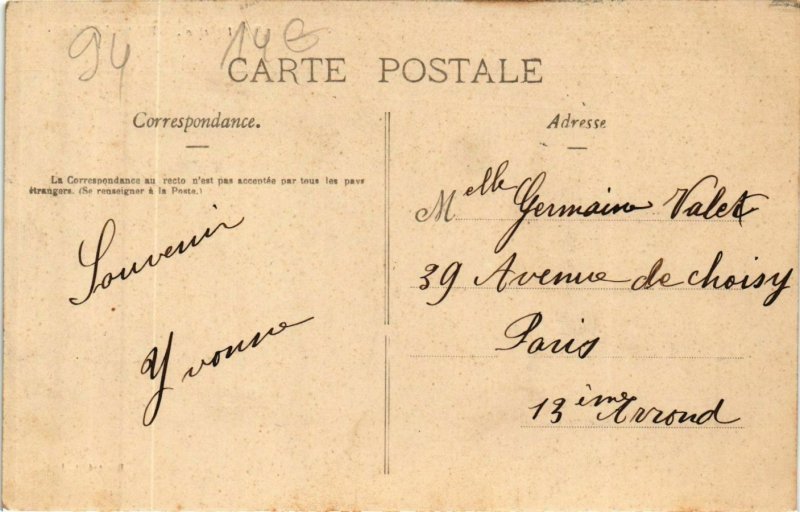 94
14e
CARTE POSTALE
Correspondance.
La Correspondance au recto n'est pas acceptée par tous les pays
étrangers. (Se renseigner à la Poste.)
Souvenir
Yvonne
Adresse
Melle Germaine Valet
39 Avenue de choisy
Paris
13ème Arrond